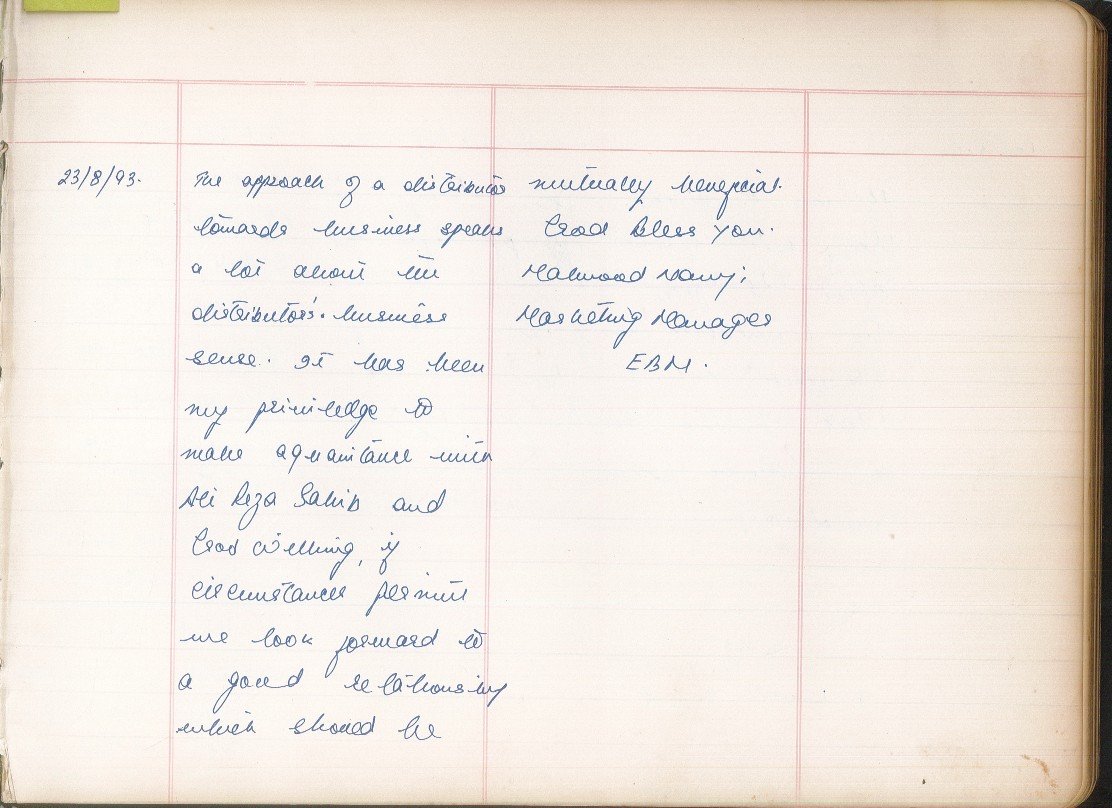 23/8/93.
The approach of a distributor
towards business speaks
a lot about the
distributor's. business
sense. It has been
my priviledge to
make aquaintance with
Ali Reza Sahib and
God willing, if
circumstances permit
we look forward to
a good relationship
which should be
mutually beneficial.
God bless you.
Mahmood
Marketing Manager
EBM.